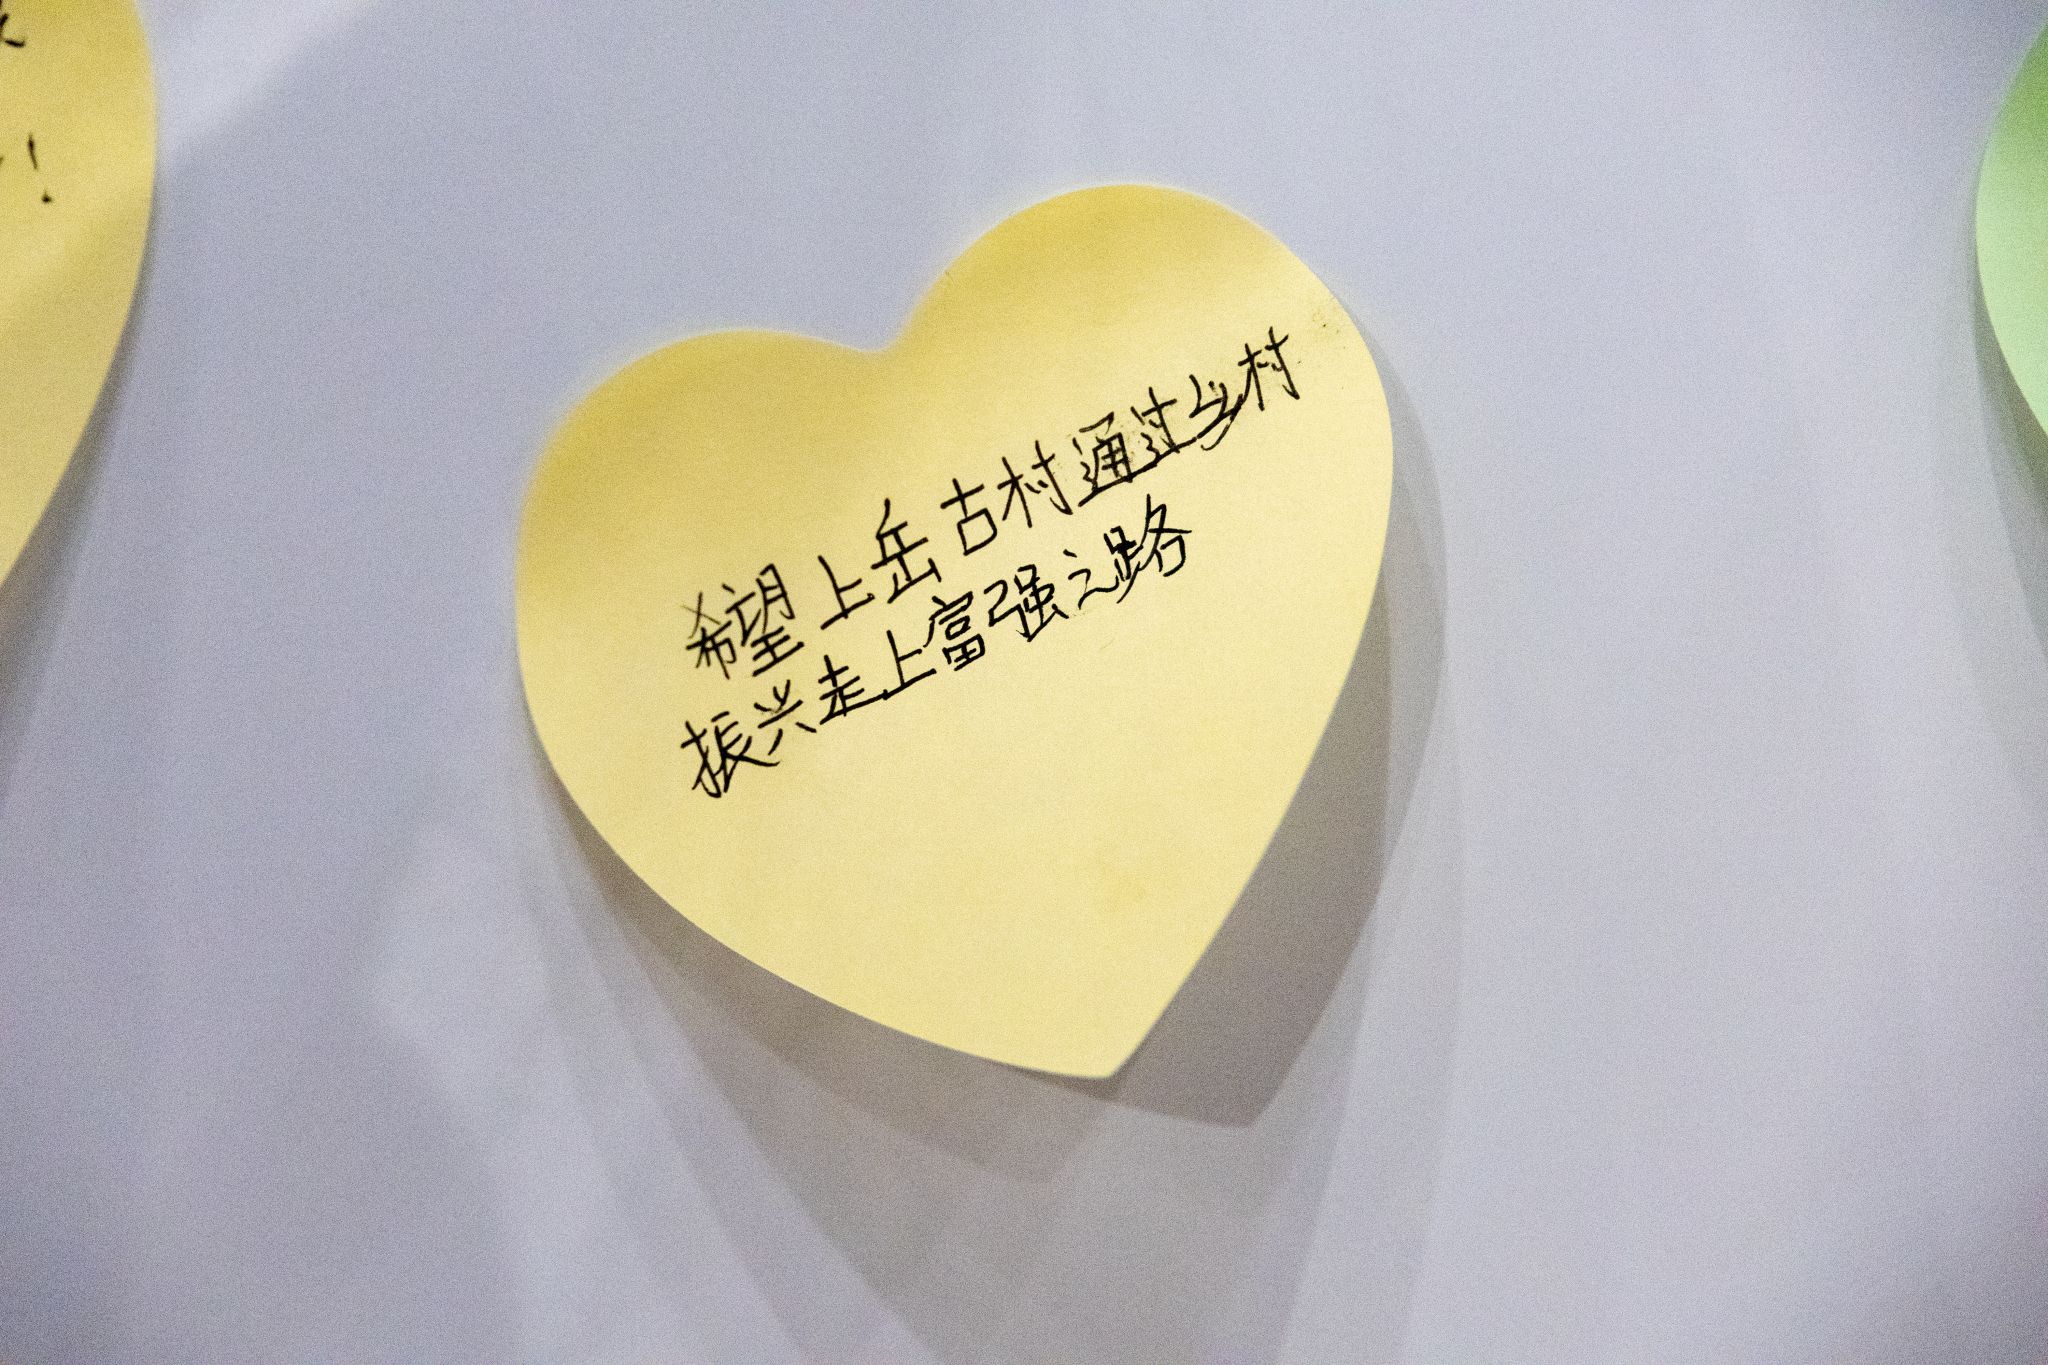 希望上岳古村通过乡村
振兴走上富强之路
！